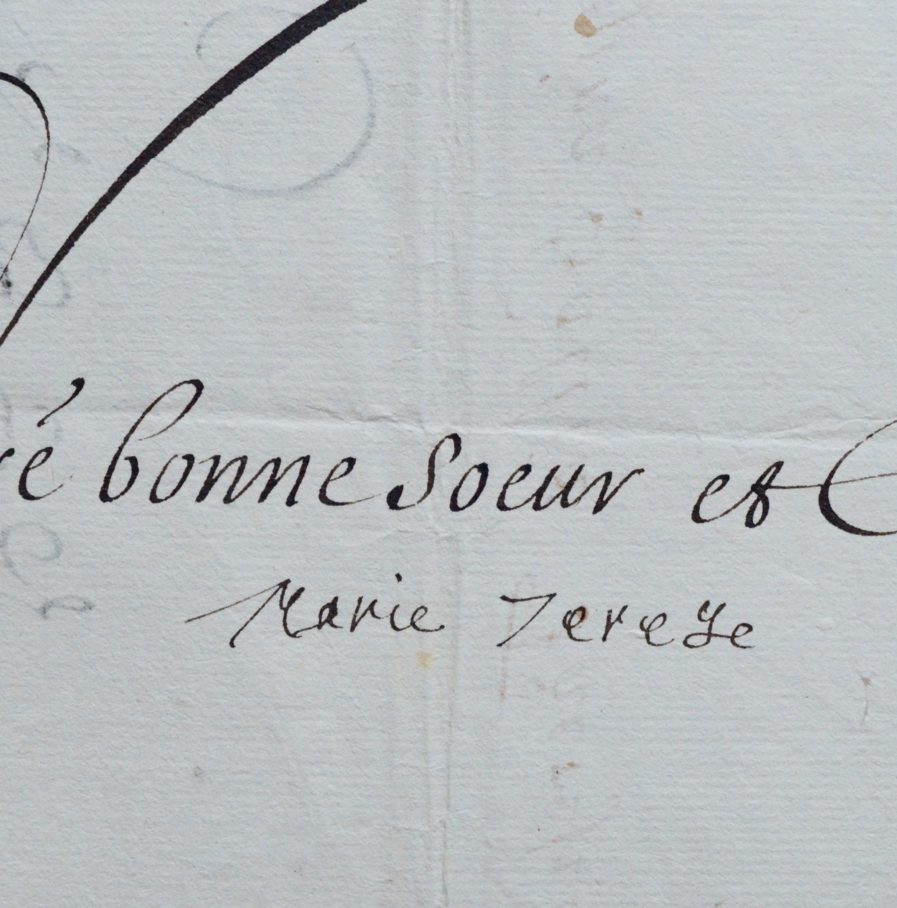 ré bonne soeur et
Marie Tereze